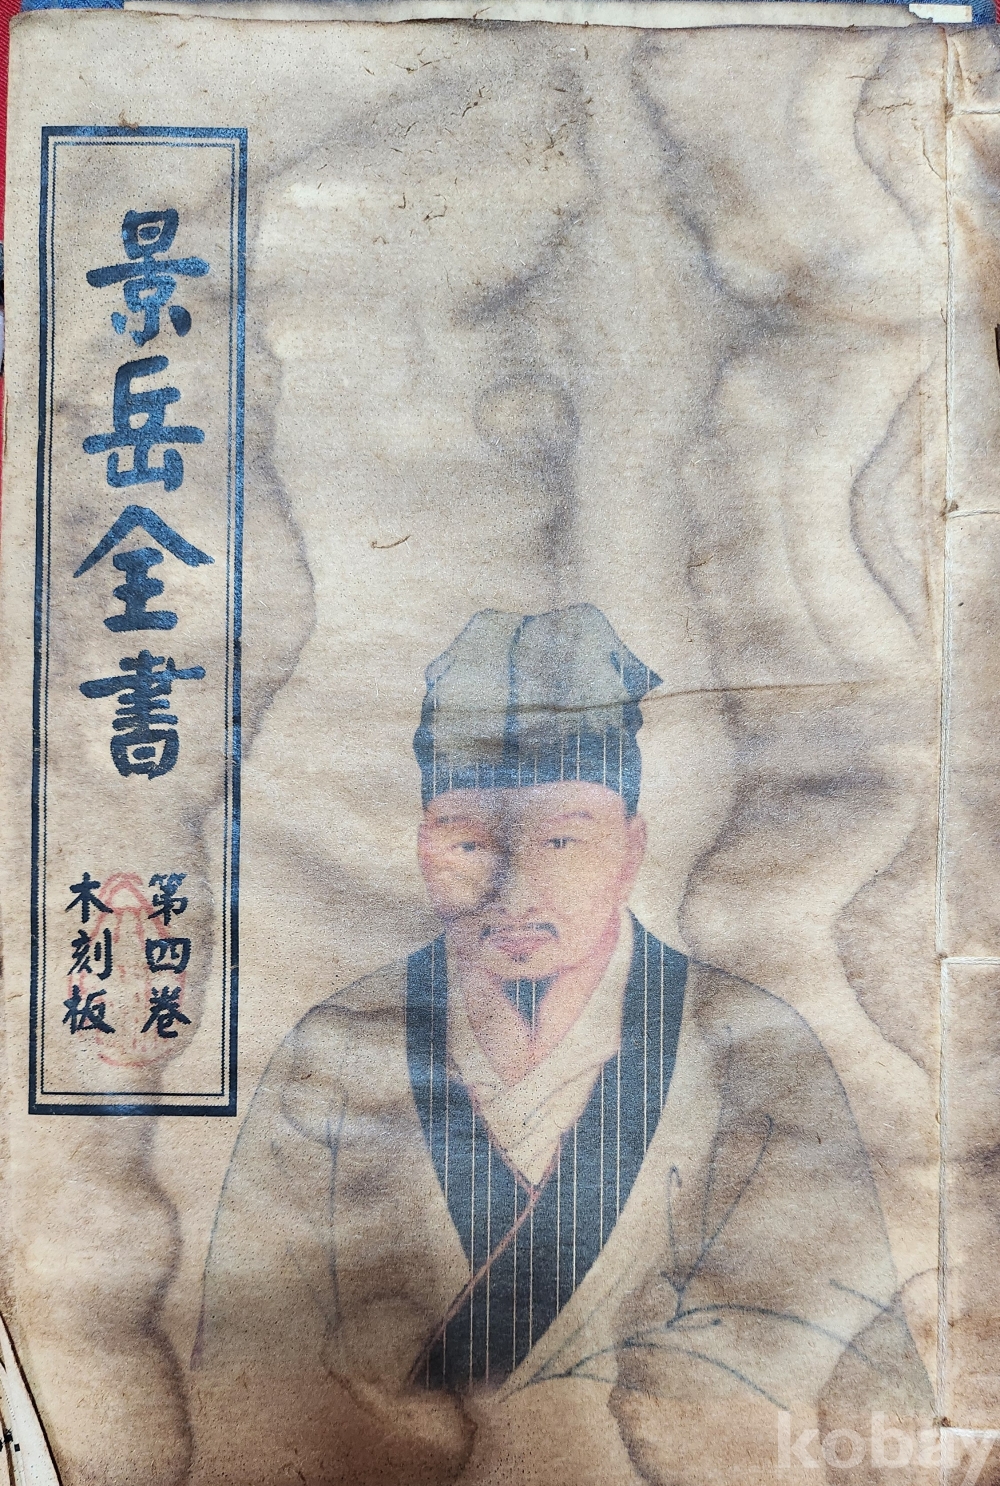 景岳全書
第四卷
木刻板
kobay